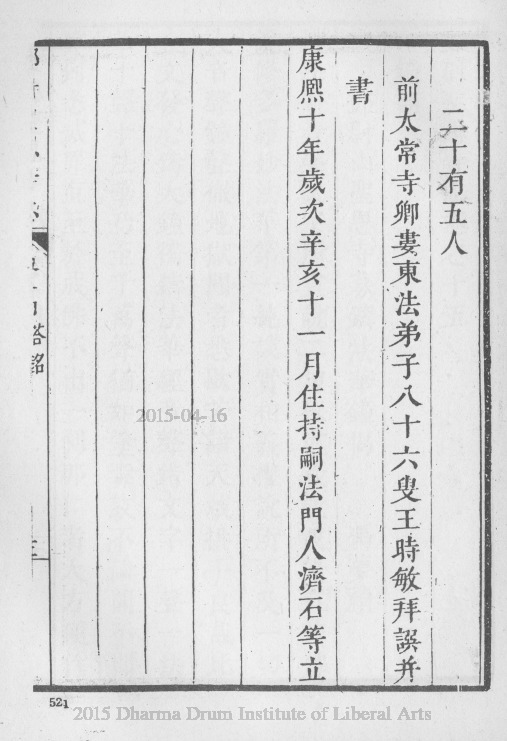 二十有五人
前太常寺卿婁東法弟子八十六叟王時敏拜譔并
書
康熈十年歲次辛亥十一月住持嗣法門人濟石等立
塔銘
2015-04-16
521
2015 Dharma Drum Institute of Liberal Arts